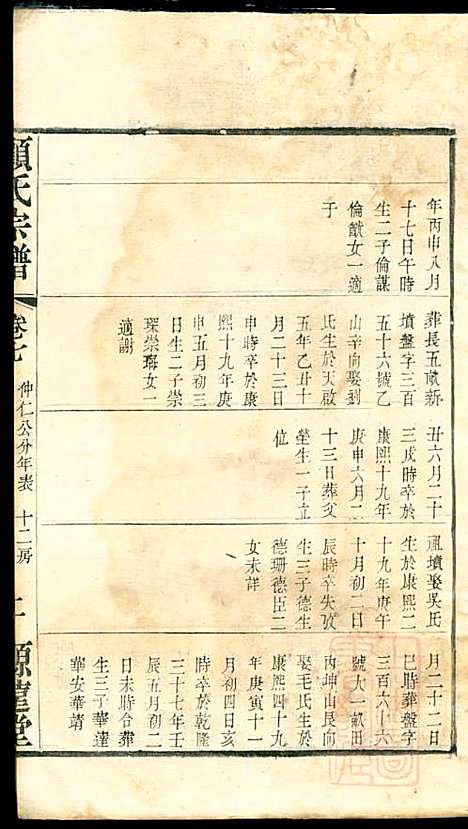 年丙申八月
十七日午時
生二子倫謀
倫猷女一適
于
葬長五畝新
墳盤字三百
五十六號乙
山辛向娶劉
氏生於天啟
五年乙丑十
月二十三日
申時卒於康
熙十九年庚
申五月初三
日生二子崇
琛崇瑞女一
適謝
丑六月二十
三戌時卒於
康熙十九年
庚申六月二
十三日葬父
塋生一子立
位
祖墳娶吳氏
生於康熙二
十九年庚午
十月初二日
辰時卒失攷
生三子德生
德珊德臣二
女未詳
月二十二日
巳時葬盤字
三百六十六
號大一畝田
丙坤山艮向
娶毛氏生於
康熙四十九
年庚寅十一
月初四日亥
時卒於乾隆
三十七年壬
辰五月初二
日未時合葬
生三子華達
華安華靖
顧氏宗譜
卷七
仲仁公分年表
十二房
源遠堂